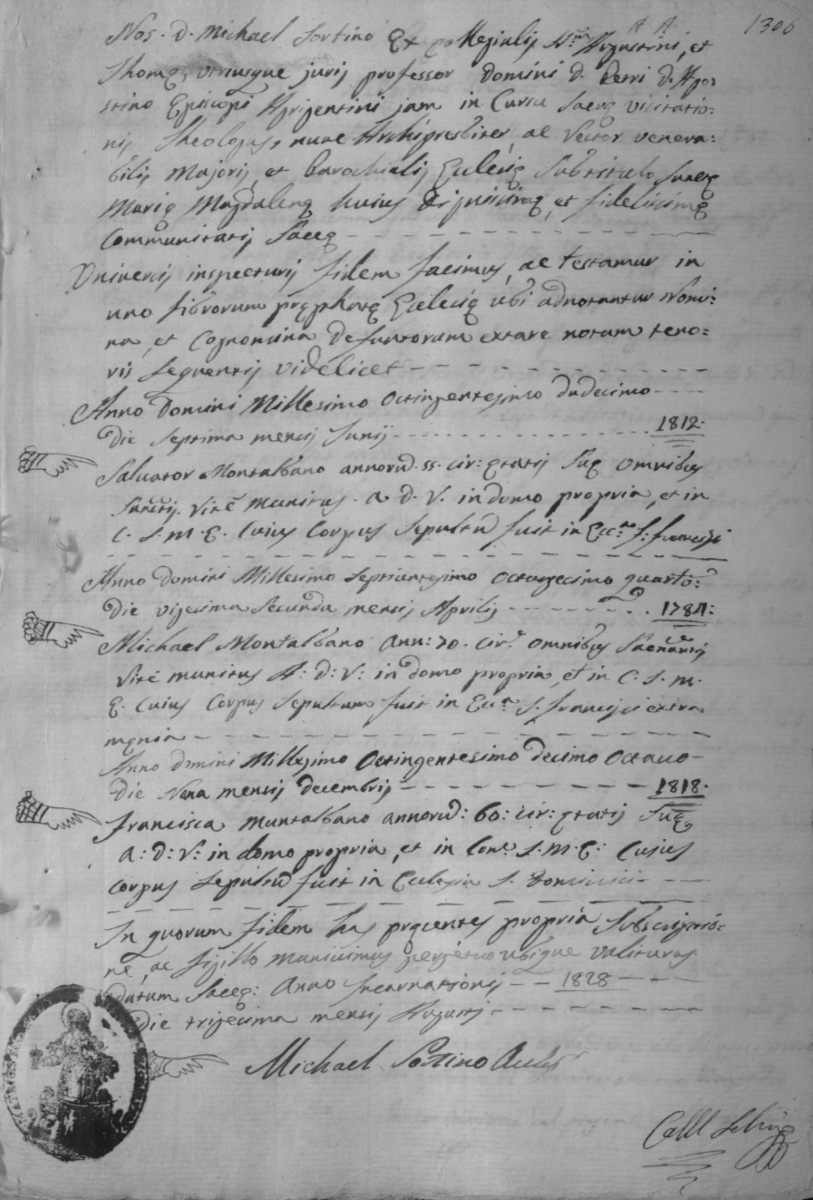 1306
Nos. D. Michael Sortino Ex Collegialis Augustini, et
Thomę, utriusque juris professor Domini D. Petri D'Ago=
stino Episcopi Agrigentini jam in Cursu Sacrę visitatio=
nis Theologus, nunc Archipresbiter, ac Rector venera=
bilis Majoris, et Parochialis Ecclesię Subtitulo Sanctę
Marię Magdalenę hujus et fidelissimę
Communitatis Saccę
Universis inspecturis fidem facimus, ac testamur in
uno librorum pręphatę Ecclesię ubi adnotantur Nomi=
na, et Cognomina defunctorum extare notam teno=
ris sequentis videlicet
Anno Domini Millesimo Octingentesimo duodecimo
die septima mensis Junij 1812.
Salvator Montalbano annorũ. 55. cir: ętatis suę omnibus
Vitę munitus. a. d. V. in domo propria, et in
C. S. M. E. Cuius Corpus sepultũ fuit in S. Francisci
Anno Domini Millesimo Septicentesimo Octuagesimo quarto=
die vigesima secunda mensis Aprilis 1784:
Michael Montalbano Ann: 70. cir. omnibus
Vitę munitus A: d: V: in domo propria, et in C. S. M.
E. Cuius Corpus Sepultum fuit in S. Francisci extra
męnia
Anno Domini Millesimo Octingentesimo decimo octavo
die Nona mensis decembris 1818.
Francisca Muntalbano annorũ: 60: cir: ętatis suę
a: d: V: in domo propria, et in Com. S. M. E: Cuius
Corpus Sepultũ fuit in Ecclesia S. Dominici
In quorum fidem has pręsentes propria Subscriptio=
ne, ac sigillo munivimus ubique valituras
datum Saccę: Anno Incarnationis 1828
Die trigesima mensis Augusti
Michael Sortino